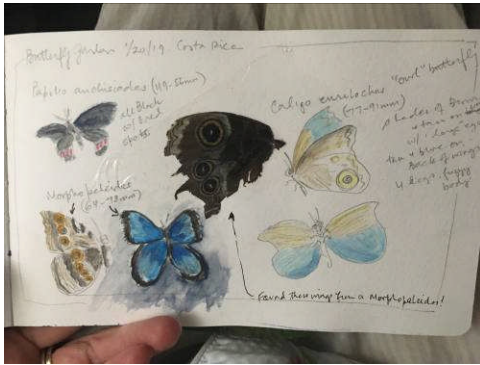 Butterfly garden 1/20/19. Costa Rica
Papilio anchisiades (49-56mm)
all Black
w/ Red
spots
Morpho peleides
(64-78mm)
Caligo eurilochus "owl" butterfly
(77-91mm)
shades of Brown
w/ 1 large eye
blue on
Back of wings
4 legs. fuzzy
body
Found these wings from a Morpho peleides!